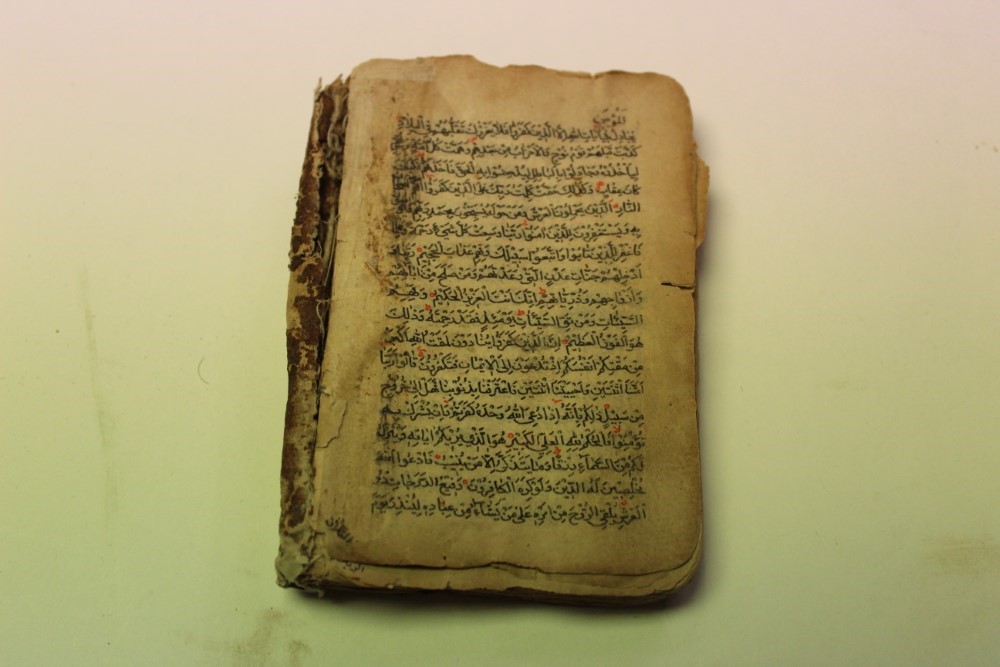 المؤمن
يجادل في ايات الله الا الذين كفروا فلا يغررك تقلبهم في البلاد
كذبت قبلهم قوم نوح والاحزاب من بعدهم وهمت كل امة
ليأخذوه وجادلوا بالباطل ليدحضوا به الحق فأخذتهم
كان عقاب وكذلك حقت كلمت ربك على الذين كفروا انهم
النار الذين يحملون العرش ومن حوله يسبحون بحمد ربهم
به ويستغفرون للذين امنوا ربنا وسعت كل شيء رحمة
فاغفر للذين تابوا واتبعوا سبيلك وقهم عذاب الجحيم ربنا و
ادخلهم جنات عدن التي وعدتهم ومن صلح من ابائهم
وازواجهم وذرياتهم انك انت العزيز الحكيم وقهم
السيئات ومن تق السيئات يومئذ فقد رحمته وذلك
هو الفوز العظيم ان الذين كفروا ينادون لمقت الله اكبر
من مقتكم انفسكم اذ تدعون الى الايمان فتكفرون قالوا ربنا
امتنا اثنتين واحييتنا اثنتين فاعترفنا بذنوبنا فهل الى خروج
من سبيل ذلكم بانه اذا دعي الله وحده كفرتم وان يشرك به
تؤمنوا فالحكم لله العلي الكبير هو الذي يريكم اياته وينزل
لكم من السماء رزقا وما يتذكر الا من ينيب فادعوا الله
مخلصين له الدين ولو كره الكافرون رفيع الدرجات ذو
العرش يلقي الروح من امره على من يشاء من عباده لينذر يوم
التلاق